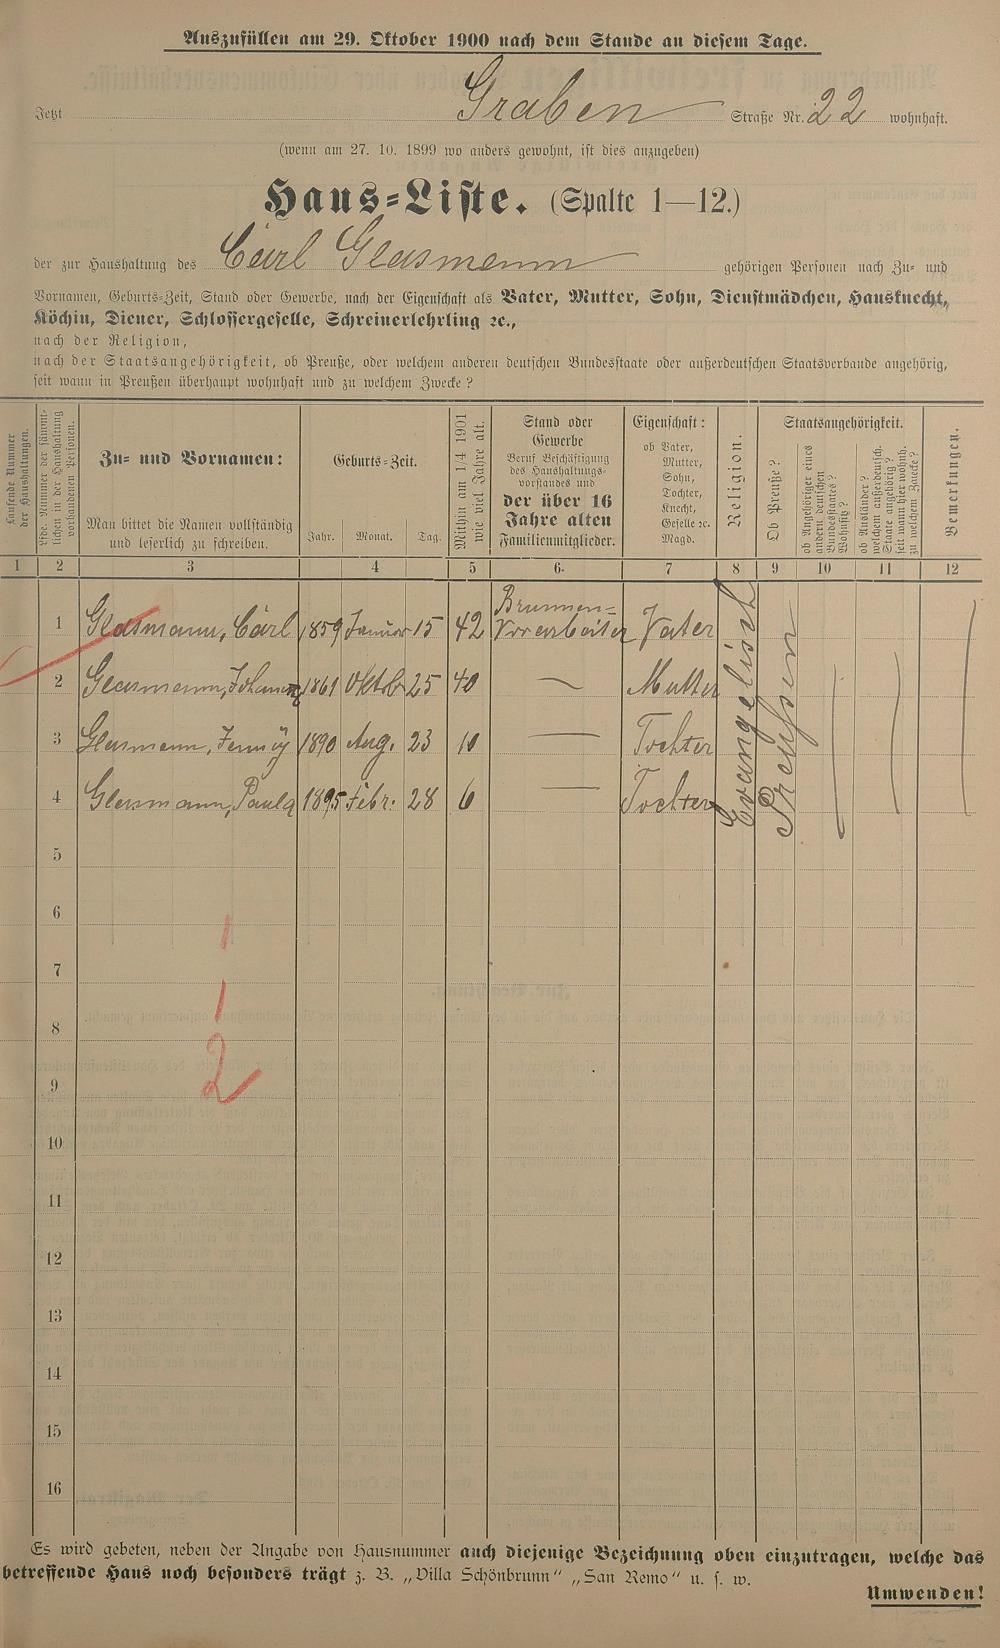 Auszufüllen am 29. Oktober 1900 nach dem Stande an diesem Tage.
Jetzt Graben Straße Nr. 22 wohnhaft.
(wenn am 27. 10. 1899 wo anders gewohnt, ist dies anzugeben)
Haus-Liste. (Spalte 1—12.)
der zur Haushaltung des Carl Glasmann gehörigen Personen nach Zu- und
Vornamen, Geburts-Zeit, Stand oder Gewerbe, nach der Eigenschaft als Vater, Mutter, Sohn, Dienstmädchen, Hausknecht,
Köchin, Diener, Schlossergeselle, Schreinerlehrling ꝛc.,
nach der Religion,
nach der Staatsangehörigkeit, ob Preuße, oder welchem anderen deutschen Bundesstaate oder außerdeutschen Staatsverbande angehörig,
seit wann in Preußen überhaupt wohnhaft und zu welchem Zwecke?
Laufende Nummer
der Haushaltungen.
Lfde. Nummer der sämmt-
lichen in der Haushaltung
vorhandenen Personen.
Zu- und Vornamen:
Man bittet die Namen vollständig
und leserlich zu schreiben.
Geburts-Zeit.
Jahr. Monat. Tag.
Mithin am 1/4 1901
wie viel Jahre alt.
Stand oder
Gewerbe
Beruf Beschäftigung
des Haushaltungs-
vorstandes und
der über 16
Jahre alten
Familienmitglieder.
Eigenschaft:
ob Vater,
Mutter,
Sohn,
Tochter,
Knecht,
Geselle ꝛc.
Magd.
Religion.
Staatsangehörigkeit.
Ob Preuße?
ob Angehöriger eines
andern deutschen
Bundesstaates?
Wohnsitz?
ob Ausländer?
welchem außerdeutsch.
Staate angehörig?
seit wann hier wohnh.
zu welchem Zwecke?
Bemerkungen.
1 2 3 4 5 6. 7 8 9 10 11 12
1 Glasmann, Carl 1859 Januar 15 42 Brunnen-
Vorarbeiter Vater
2 Glasmann, Johanna 1861 Oktob 25 40 — Mutter
3 Glasmann, Jenny 1890 Aug. 23 10 — Tochter
4 Glasmann, Paula 1895 Febr. 28 6 — Tochter
Evangelisch
Preußen
5
6
7
8
2
9
10
11
12
13
14
15
16
Es wird gebeten, neben der Angabe von Hausnummer auch diejenige Bezeichnung oben einzutragen, welche das
betreffende Haus noch besonders trägt z. B. „Villa Schönbrunn“ „San Remo“ u. s. w.
Umwenden!